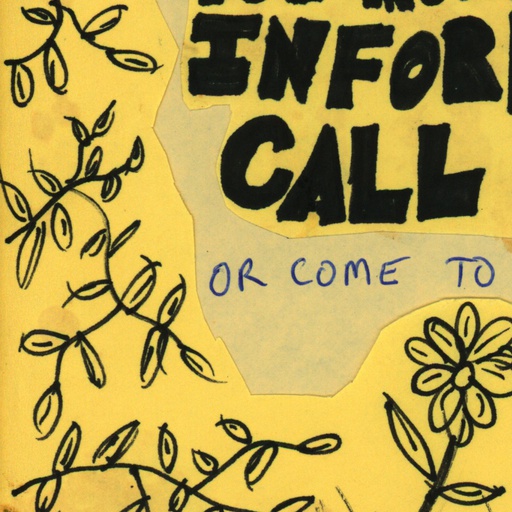 INFOR
CALL
OR COME TO